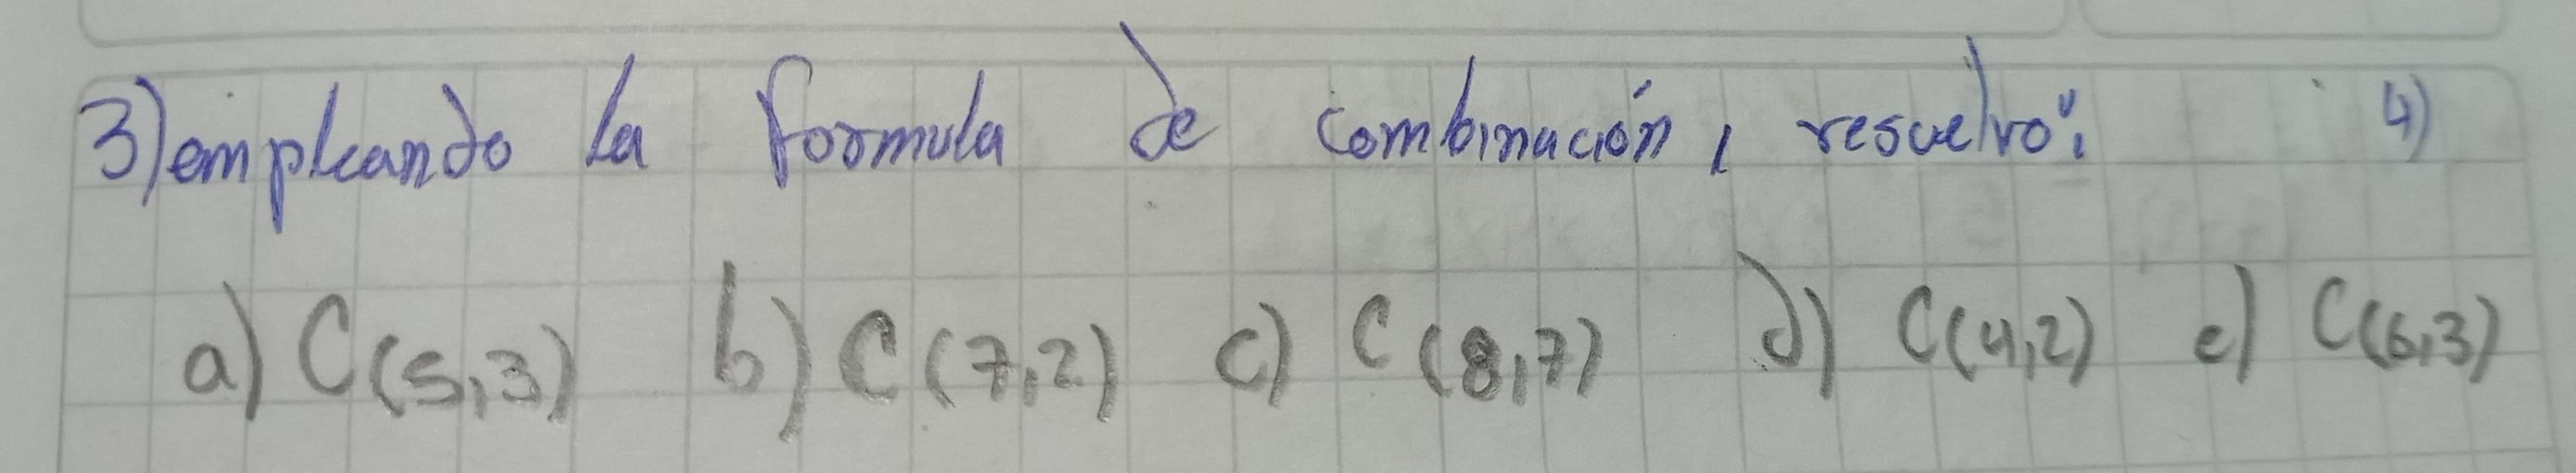 3) empleando la formula de combinación, resuelvo: 4)
a) C(5,3) b) C(7,2) c) C(8,7) d) C(4,2) e) C(6,3)